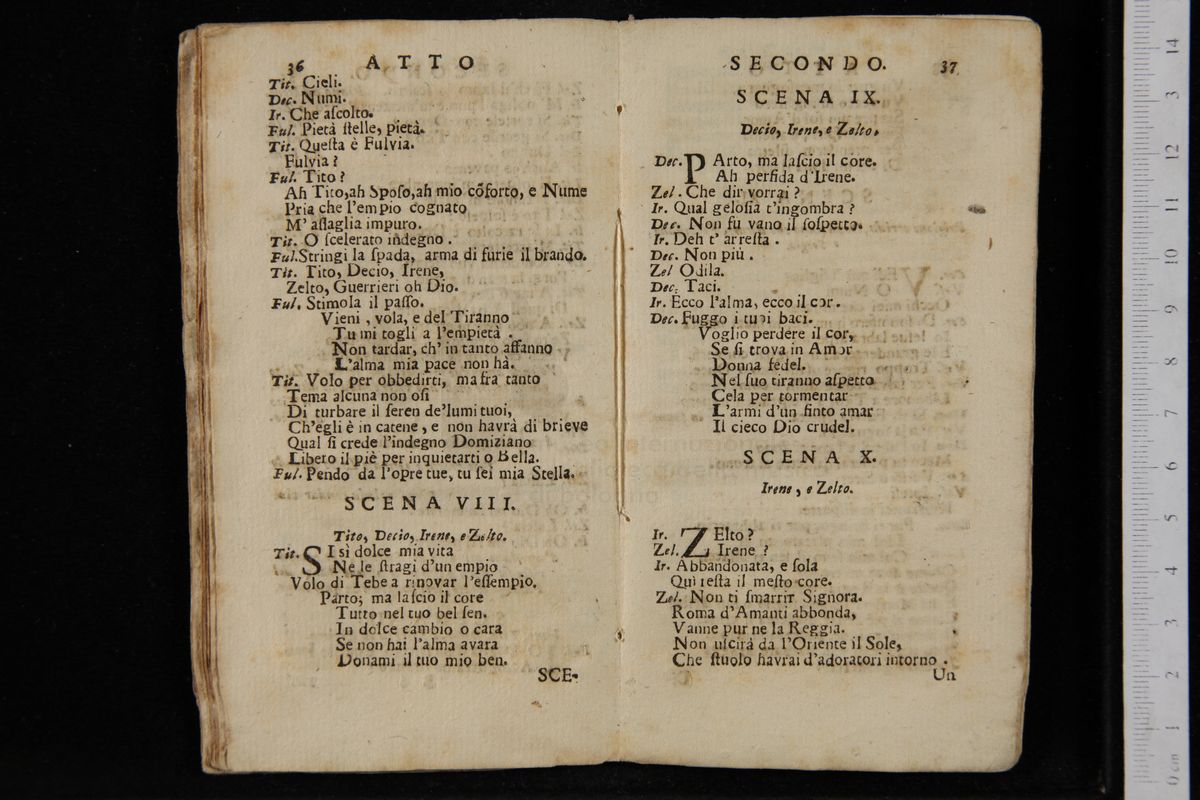 36 ATTO
Tit. Cieli.
Dec. Numi.
Ir. Che aſcolto.
Ful. Pietà ſtelle, pietà.
Tit. Queſta è Fulvia.
Fulvia ?
Ful. Tito ?
Ah Tito,ah Spoſo,ah mio cõforto, e Nume
Pria che l'empio Cognato
M' aſſaglia impuro.
Tit. O ſcelerato indegno .
Ful.Stringi la ſpada, arma di furie il brando.
Tit. Tito, Decio, Irene,
Zelto, Guerrieri oh Dio.
Ful. Stimola il paſſo.
Vieni , vola, e del Tiranno
Tu mi togli a l'empietà .
Non tardar, ch' in tanto affanno
L'alma mia pace non hà.
Tit. Volo per obbedirti, ma fra tanto
Tema alcuna non oſi
Di turbare il ſeren de'lumi tuoi,
Ch'egli è in catene , e non havrà di brieve
Qual ſi crede l'indegno Domiziano
Libero il piè per inquietarti o Bella.
Ful. Pendo da l'opre tue, tu ſei mia Stella.
SCENA VIII.
Tito, Decio, Irene, e Zelto.
Tit. SI sì dolce mia vita
Ne le ſtragi d'un empio
Volo di Tebe a rinovar l'eſſempio.
Parto; ma laſcio il core
Tutto nel tuo bel ſen.
In dolce cambio o cara
Se non hai l'alma avara
Donami il tuo mio ben.
SCE-
SECONDO. 37
SCENA IX.
Decio, Irene, e Zelto.
Dec. PArto, ma laſcio il core.
Ah perfida d'Irene.
Zel . Che dir vorrai ?
Ir. Qual geloſia t'ingombra ?
Dec. Non fu vano il ſoſpetto.
Ir. Deh t' arreſta .
Dec. Non più .
Zel Odila.
Dec. Taci.
Ir. Ecco l'alma, ecco il cor.
Dec. Fuggo i tuoi baci.
Voglio perdere il cor,
Se ſi trova in Amor
Donna fedel.
Nel ſuo tiranno aſpetto
Cela per tormentar
L'armi d'un finto amar
Il cieco Dio crudel.
SCENA X.
Irene , e Zelto.
Ir. ZElto ?
Zel. Irene ?
Ir. Abbandonata, e ſola
Quì reſta il meſto core.
Zel. Non ti ſmarrir Signora.
Roma d'Amanti abbonda,
Vanne pur ne la Reggia.
Non uſcirà da l'Oriente il Sole,
Che ſtuolo havrai d'adoratori intorno .
Un
0 cm 1 2 3 4 5 6 7 8 9 10 11 12 3 14